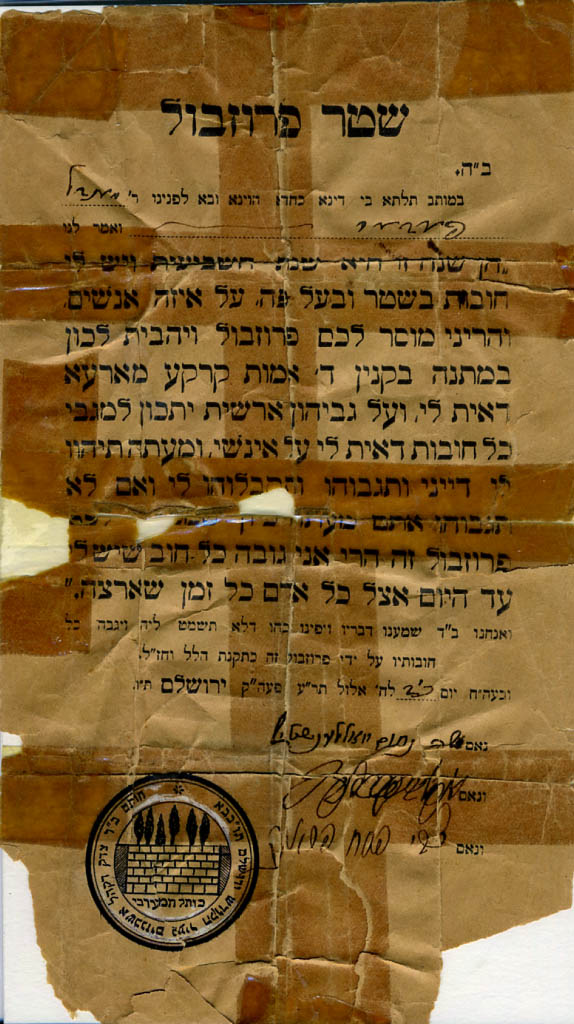 שטר פרוזבול
ב"ה.
במותב תלתא בי דינא כחדא הוינא ובא לפנינו ר'
ואמר לנו
"הן שנה זו היא שנת השביעית ויש לי
חובות בשטר ובעל פה, על איזה אנשים.
והריני מוסר לכם פרוזבול ויהבית לכון
במתנה בקנין ד' אמות קרקע מארעא
דאית לי, ועל גביהון ארשית יתכון למגבי
כל חובות דאית לי על אינשי, ומעתה תיהוו
לי דייני ותגבוהו ותקבלוהו לי ואם לא
תגבוהו אתם מעתה
פרוזבול זה הרי אני גובה כל חוב שיש לי
עד היום אצל כל אדם כל זמן שארצה."
ואנחנו ב"ד שמענו דבריו ויפינו כחו דלא תשמט ליה ויגבה כל
חובותיו על ידי פרוזבול זה כתקנת הלל וחז"ל.
ובעה"ח יום לח' אלול תר"ע פעה"ק ירושלם ת"ו.
נאם משה נחום
ונאם
ונאם
חותם ב"ד צדק לקהל אשכנזים בעיר הקודש ירושלם תובב"א
כותל המערבי